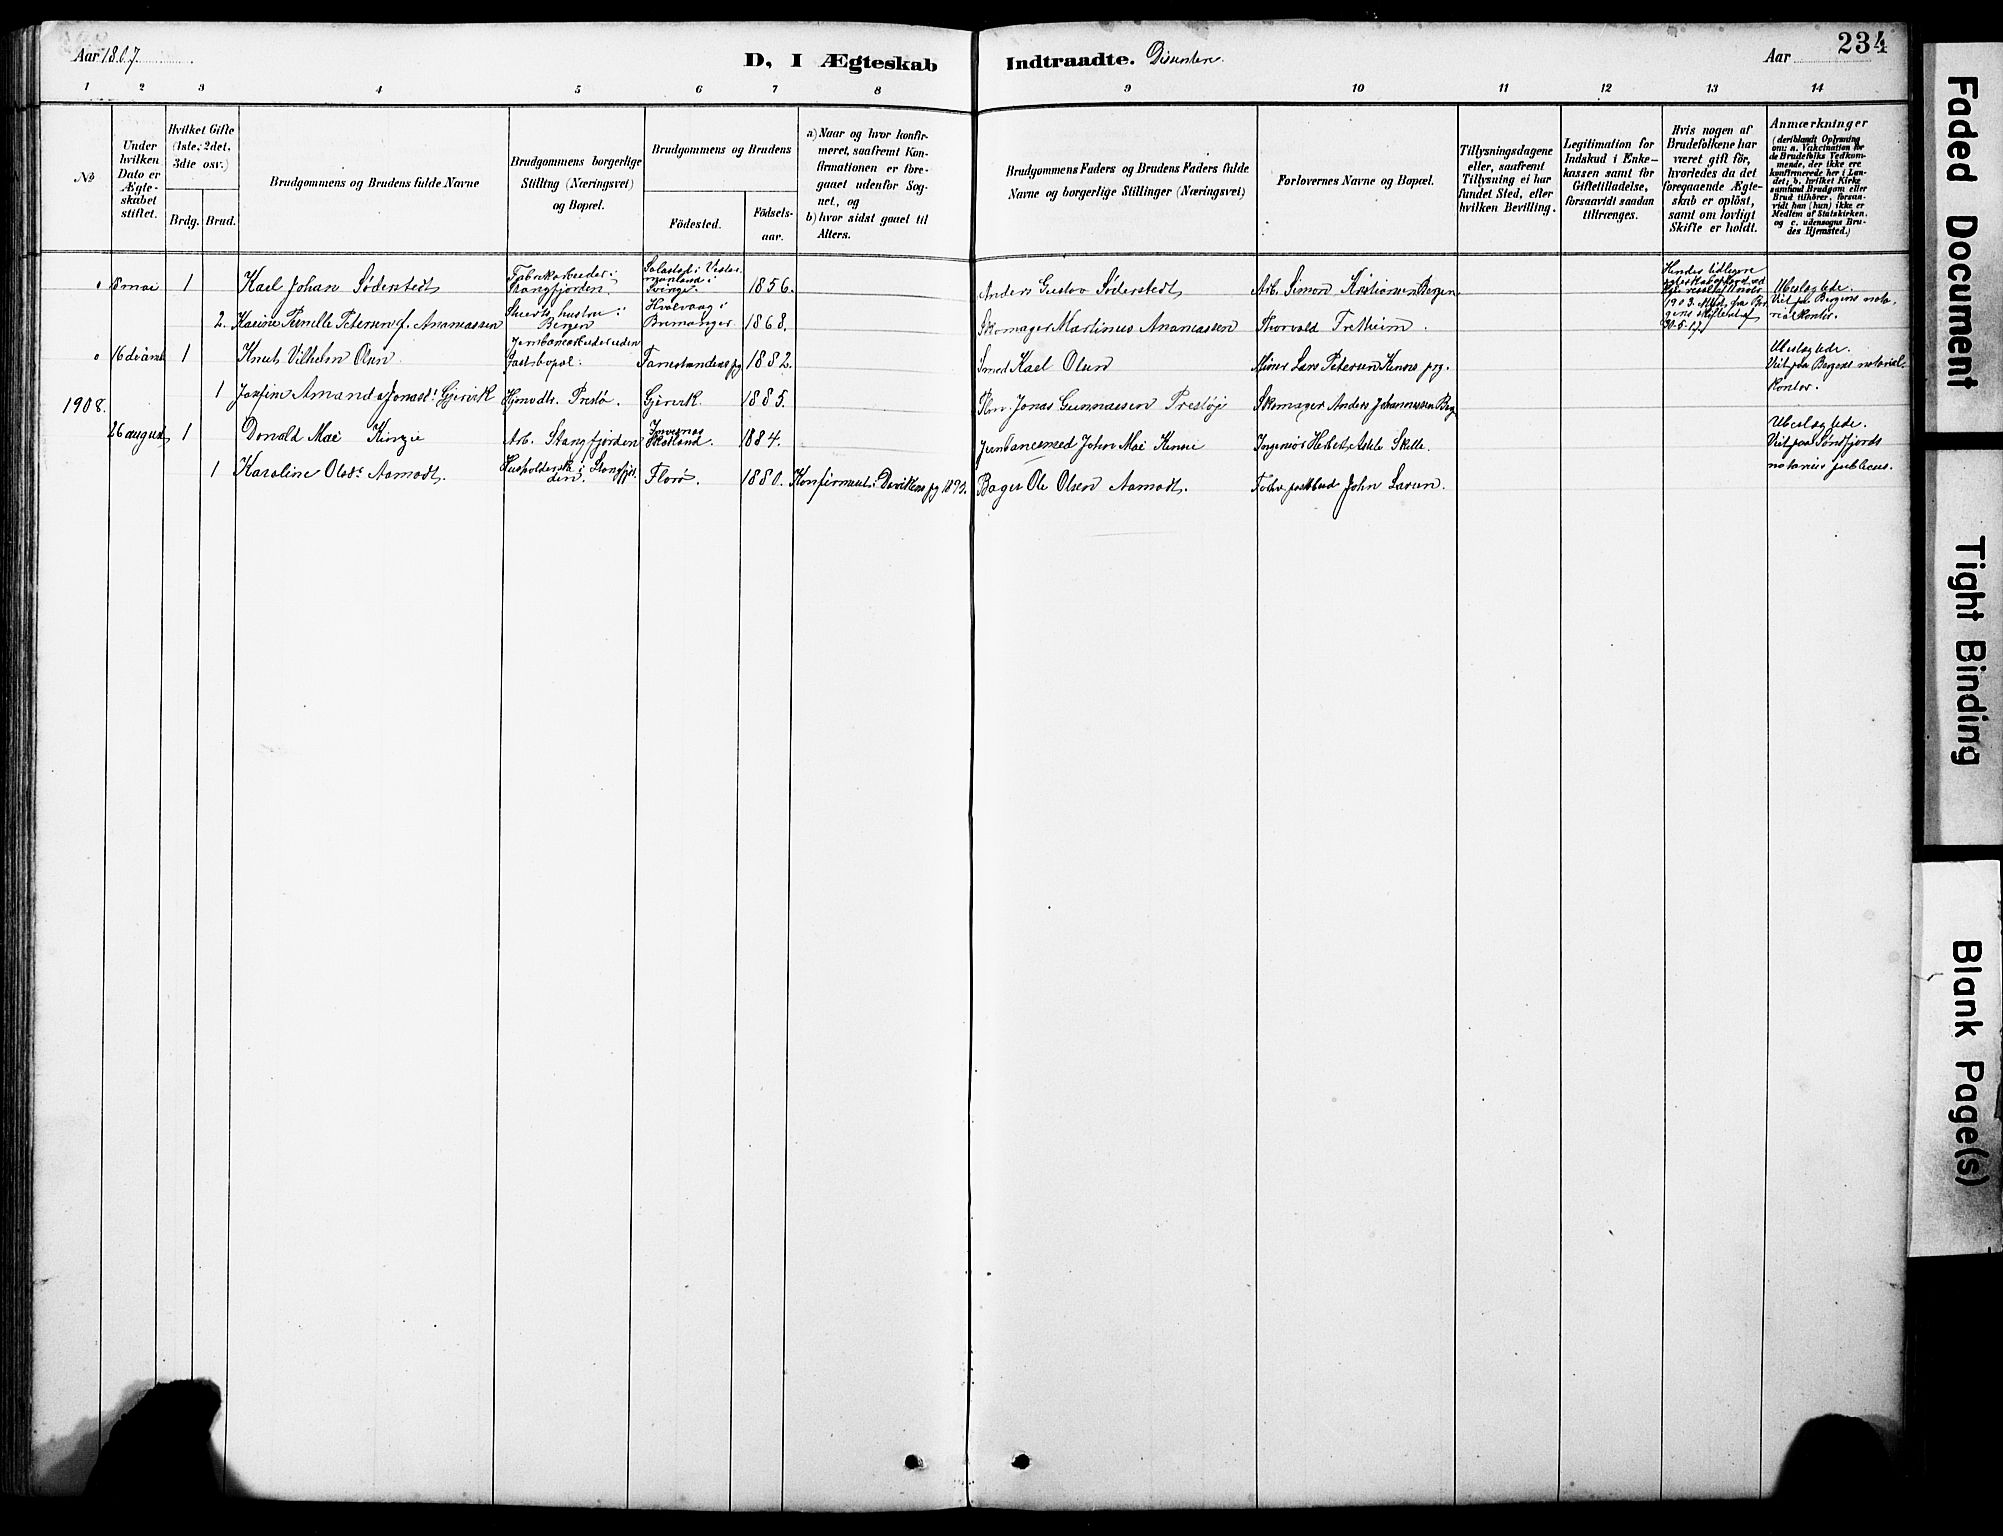 Aar 1807.
D, I Ægteskab Indtraadte. Disenter.
Aar
234
1 2 3 4 5 6 7 8 9 10 11 12 13 14
No
Under hvilken Dato er Ægteskabet stiftet.
Hvilket Gifte (1ste, 2det, 3die osv.)
Brdg. Brud.
Brudgommens og Brudens fulde Navne
Brudgommens borgerlige Stilling (Næringsvei) og Bopæl.
Brudgommens og Brudens
Födested.
Födselsaar.
a) Naar og hvor konfirmeret, saafremt Konfirmationen er foregaaet udenfor Sognet, og
b) hvor sidst gaaet til Alters.
Brudgommens Faders og Brudens Faders fulde Navne og borgerlige Stillinger (Næringsvei)
Forlovernes Navne og Bopæl.
Tillysningsdagene eller, saafremt Tillysning ei har fundet Sted, efter hvilken Bevilling.
Legitimation for Indskud i Enkekassen samt for Giftetilladelse, forsaavidt saadan tiltrænges.
Hvis nogen af Brudefolkene har været gift för, hvorledes da det foregaaende Ægteskab er oplöst, samt om lovligt Skifte er holdt.
Anmærkninger
(deriblandt Oplysning om: a. Vakcination for de Brudefolks Vedkommende, der ikke ere konfirmerede her i Landet; b. hvilket Kirkesamfund Brudgom eller Brud tilhörer, forsaavidt han (hun) ikke er Medlem af Statskirken, og c. udensogns Brudes Hjemsted.)
8 mai 1 Karl Johan Søderstedt Fabrikarbeider i Stangfjorden. Salastad i Vestermanland i Sverige. 1856. Anders Gustav Søderstedt Arb. Simon Kristiansen Bergen
Ubeslægtede. Viet paa Bergens notarialkontor.
2. Karine Pernille Petersen f. Ananiassen Stuerts hustru i Bergen Hvalvaag i Bremanger 1868. Skomager Martinus Ananiassen Thorvald Tretheim.
16 1 Knut Vilhelm Olsen Jernbanearbeider uden fast bopæl. 1882. Smed Karl Olsen Minør Lars Petersen Kinns pg.
Ubeslægtede. Viet paa Bergens notarialkontor.
1 Josfine Amanda Jonasd. Gjervik Hjmvdt. Prestø. Gjervik. 1885. Jonas Gunnarsen Prestøy Skomager Anders Johannessen Berg
1908.
26 august 1 Donald Mac Kinzie Arb. Stangfjorden Invernes Skotland. 1884. Jernbanesmed John Mac Kensie Ingeniør
Ubeslægtede. Viet paa Søndfjords notarius publicus.
1 Karoline Olsd. Aamodt. Husholderske i Stangfjorden. Florø 1880. Konfirmeret i Davikens pg 1895. Bager Ole Olsen Aamodt. John Larsen.
Faded Document
Tight Binding
Blank Page(s)